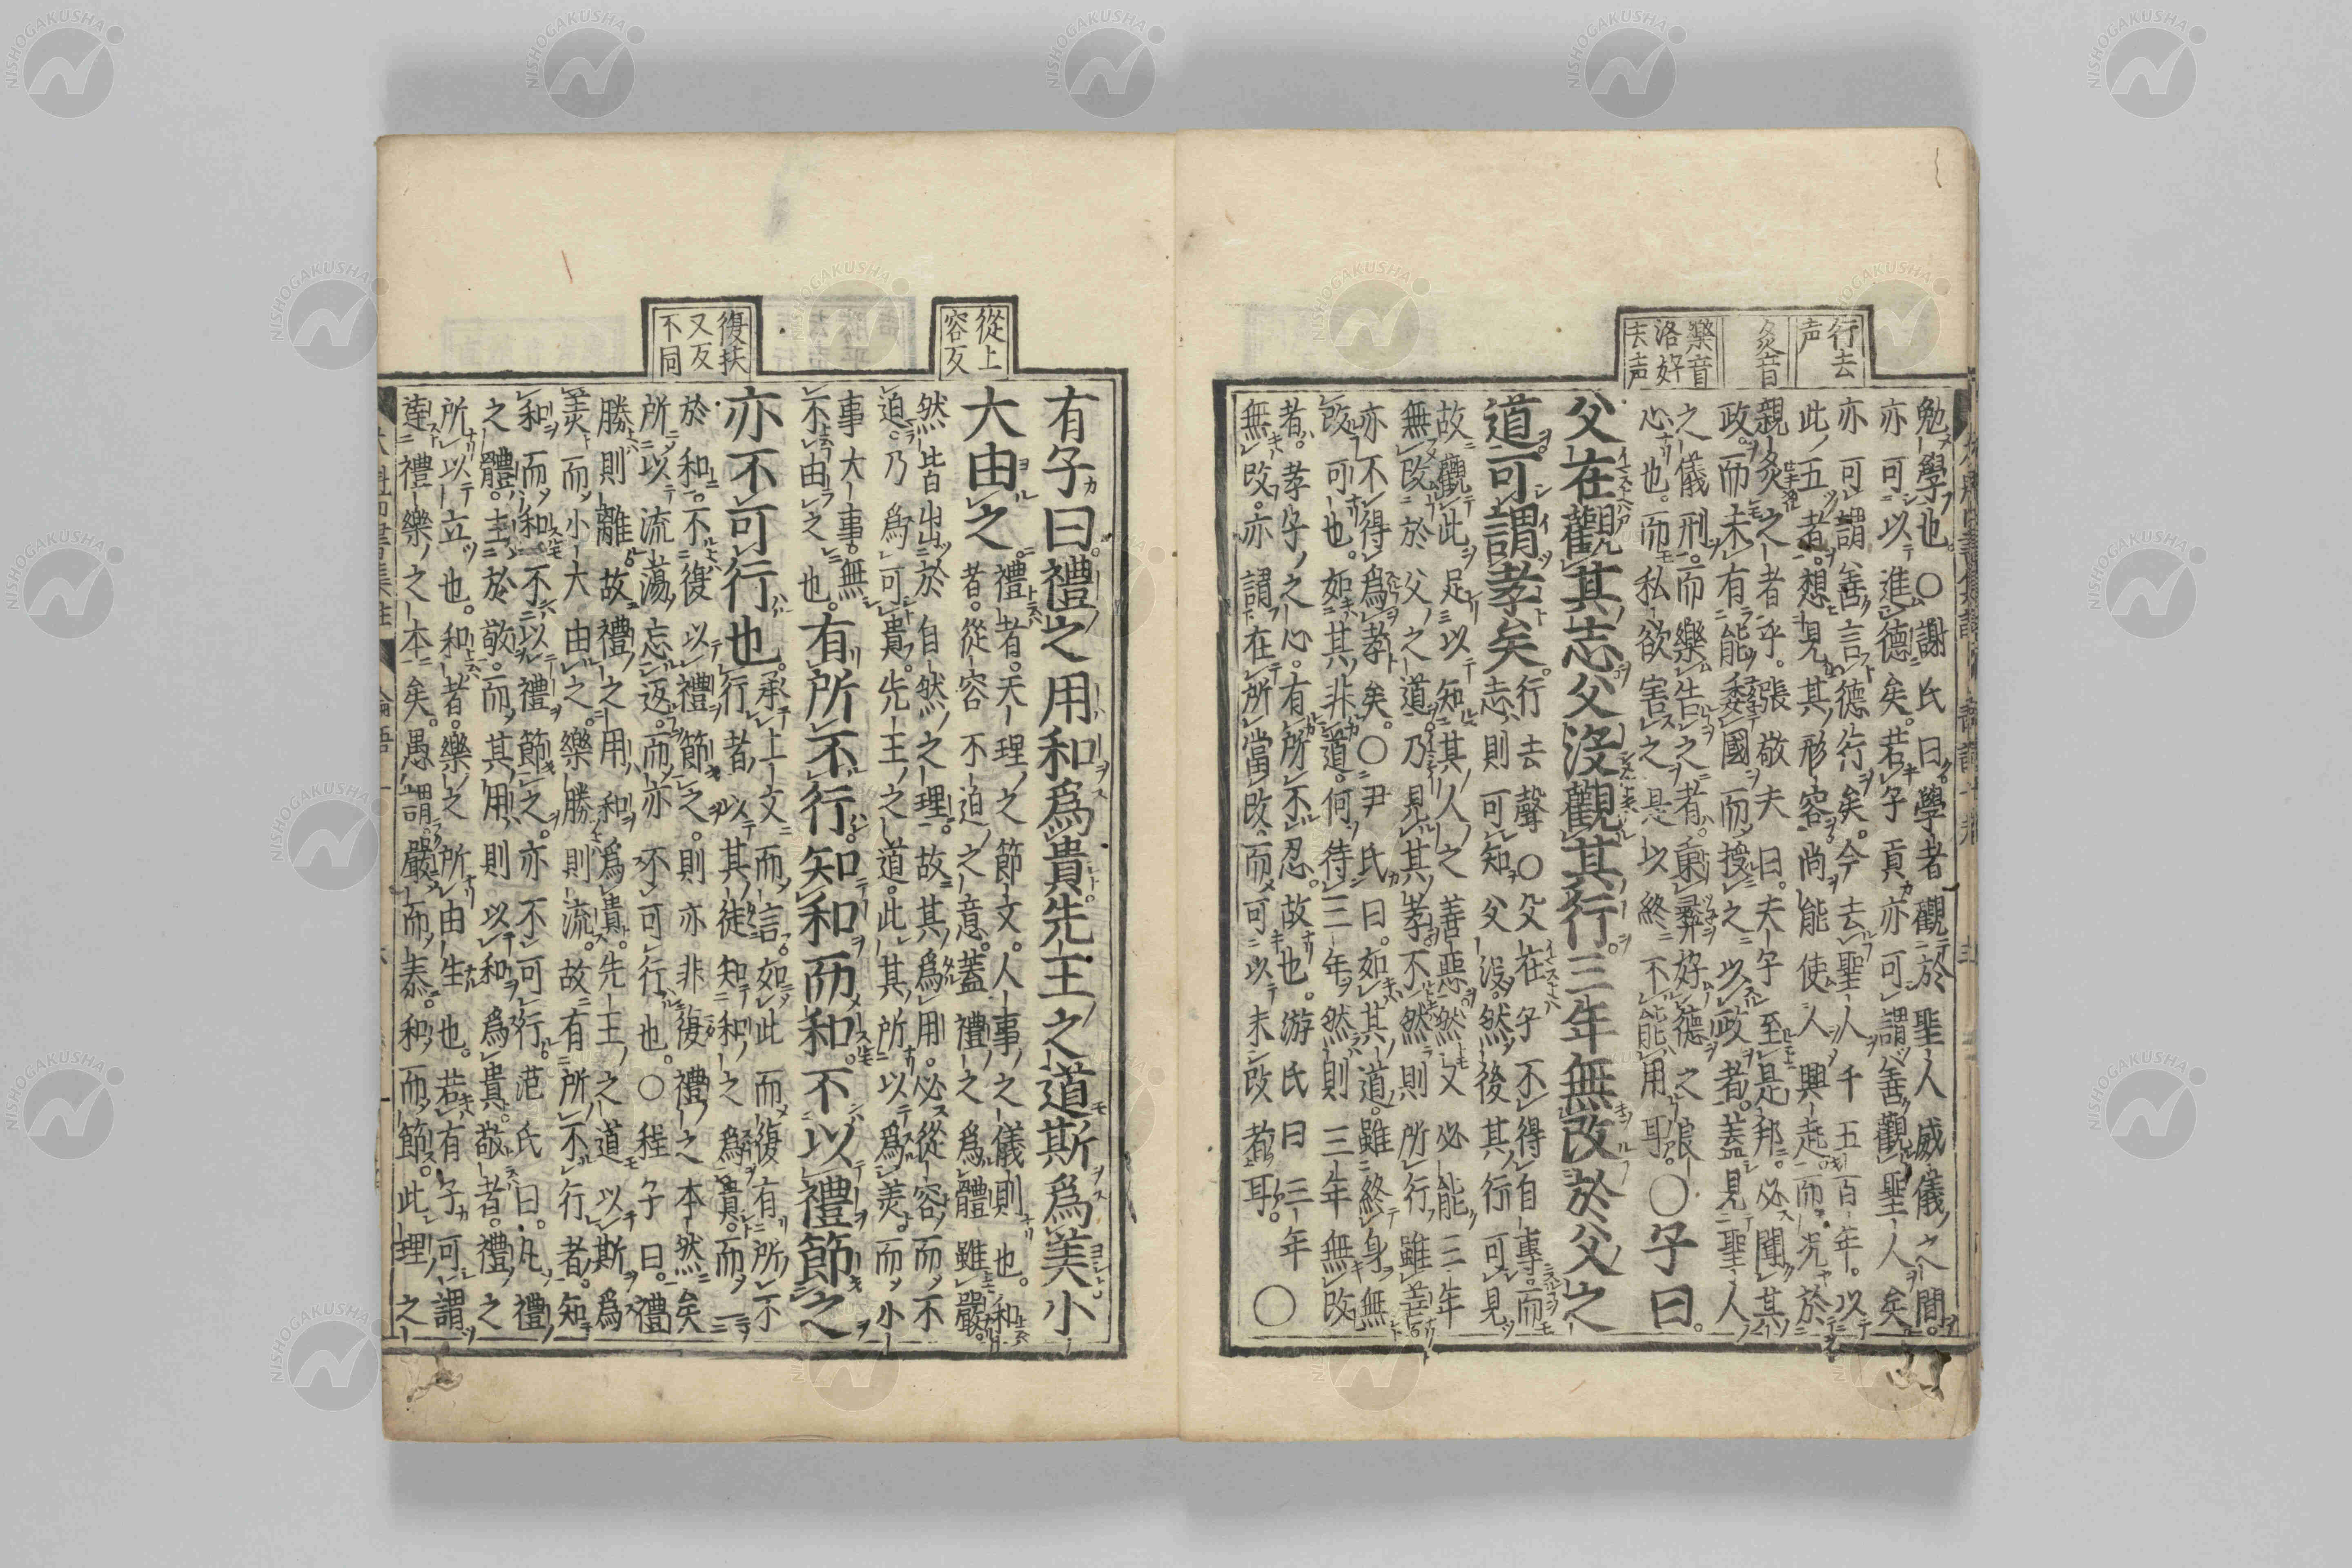 行去
声
炙音
樂音
洛好
去声
勉學也。○謝氏曰學者觀於聖人威儀之間。
亦可以進德矣。若子貢亦可謂善觀聖人矣
亦可謂善言德行矣。今去聖人千五百年。以
此五者想見其形容尚能使人興起而况於
親炙之者乎。張敬夫曰。夫子至是邦。必聞其
政。而未有能委國而授之以政者。蓋見聖人
之儀刑。而樂告之者。秉彝好德之良
心也。而私欲害之是以終不能用耳。○子曰。
父在觀其志父沒觀其行。三年無改於父之
道可謂孝矣。
行去聲○父在子不得自專。而
志則可知父沒。然後其行可見
故觀此足以知其人之善惡然又必能三年
無改於父之道乃見其孝不然則所行雖善
亦不得爲孝矣。○尹氏曰。如其道。雖終身無
改可也。如其非道。何待三年然則三年無改
者。孝子之心。有所不忍。故也。游氏曰三年
無改。亦謂在所當改而可以未改者耳。○
從上
容反
復扶
又反
不同
有子曰禮之用和爲貴先王之道斯爲美小
大由之
禮者。天理之節文。人事之儀則也。和
者。從容不迫之意。蓋禮之爲體雖嚴。
然皆出於自然之理。故其爲用。必從容而不
迫。乃爲可貴。先王之道。此其所以爲美。而小
事大事。無
不由之也。
有所不行知和而和。不以禮節之
亦不可行也。
承上文而言。如此而復有所不
行者以其徒知和之爲貴。而一
於和。不復以禮節之。則亦非復禮之本然矣
所以流蕩忘返。而亦不可行也。○程子曰。禮
勝則離。故禮之用和爲貴。先王之道以斯爲
美而小大由之。樂勝則流。故有所不行者。知
和而和。不以禮節之。亦不可行。范氏曰。凡禮
之體。主於敬。而其用則以和爲貴。敬者。禮之
所以立也。和者。樂之所由生也。若有子可謂
達禮樂之本矣。愚謂。嚴而泰。和而節。此理之